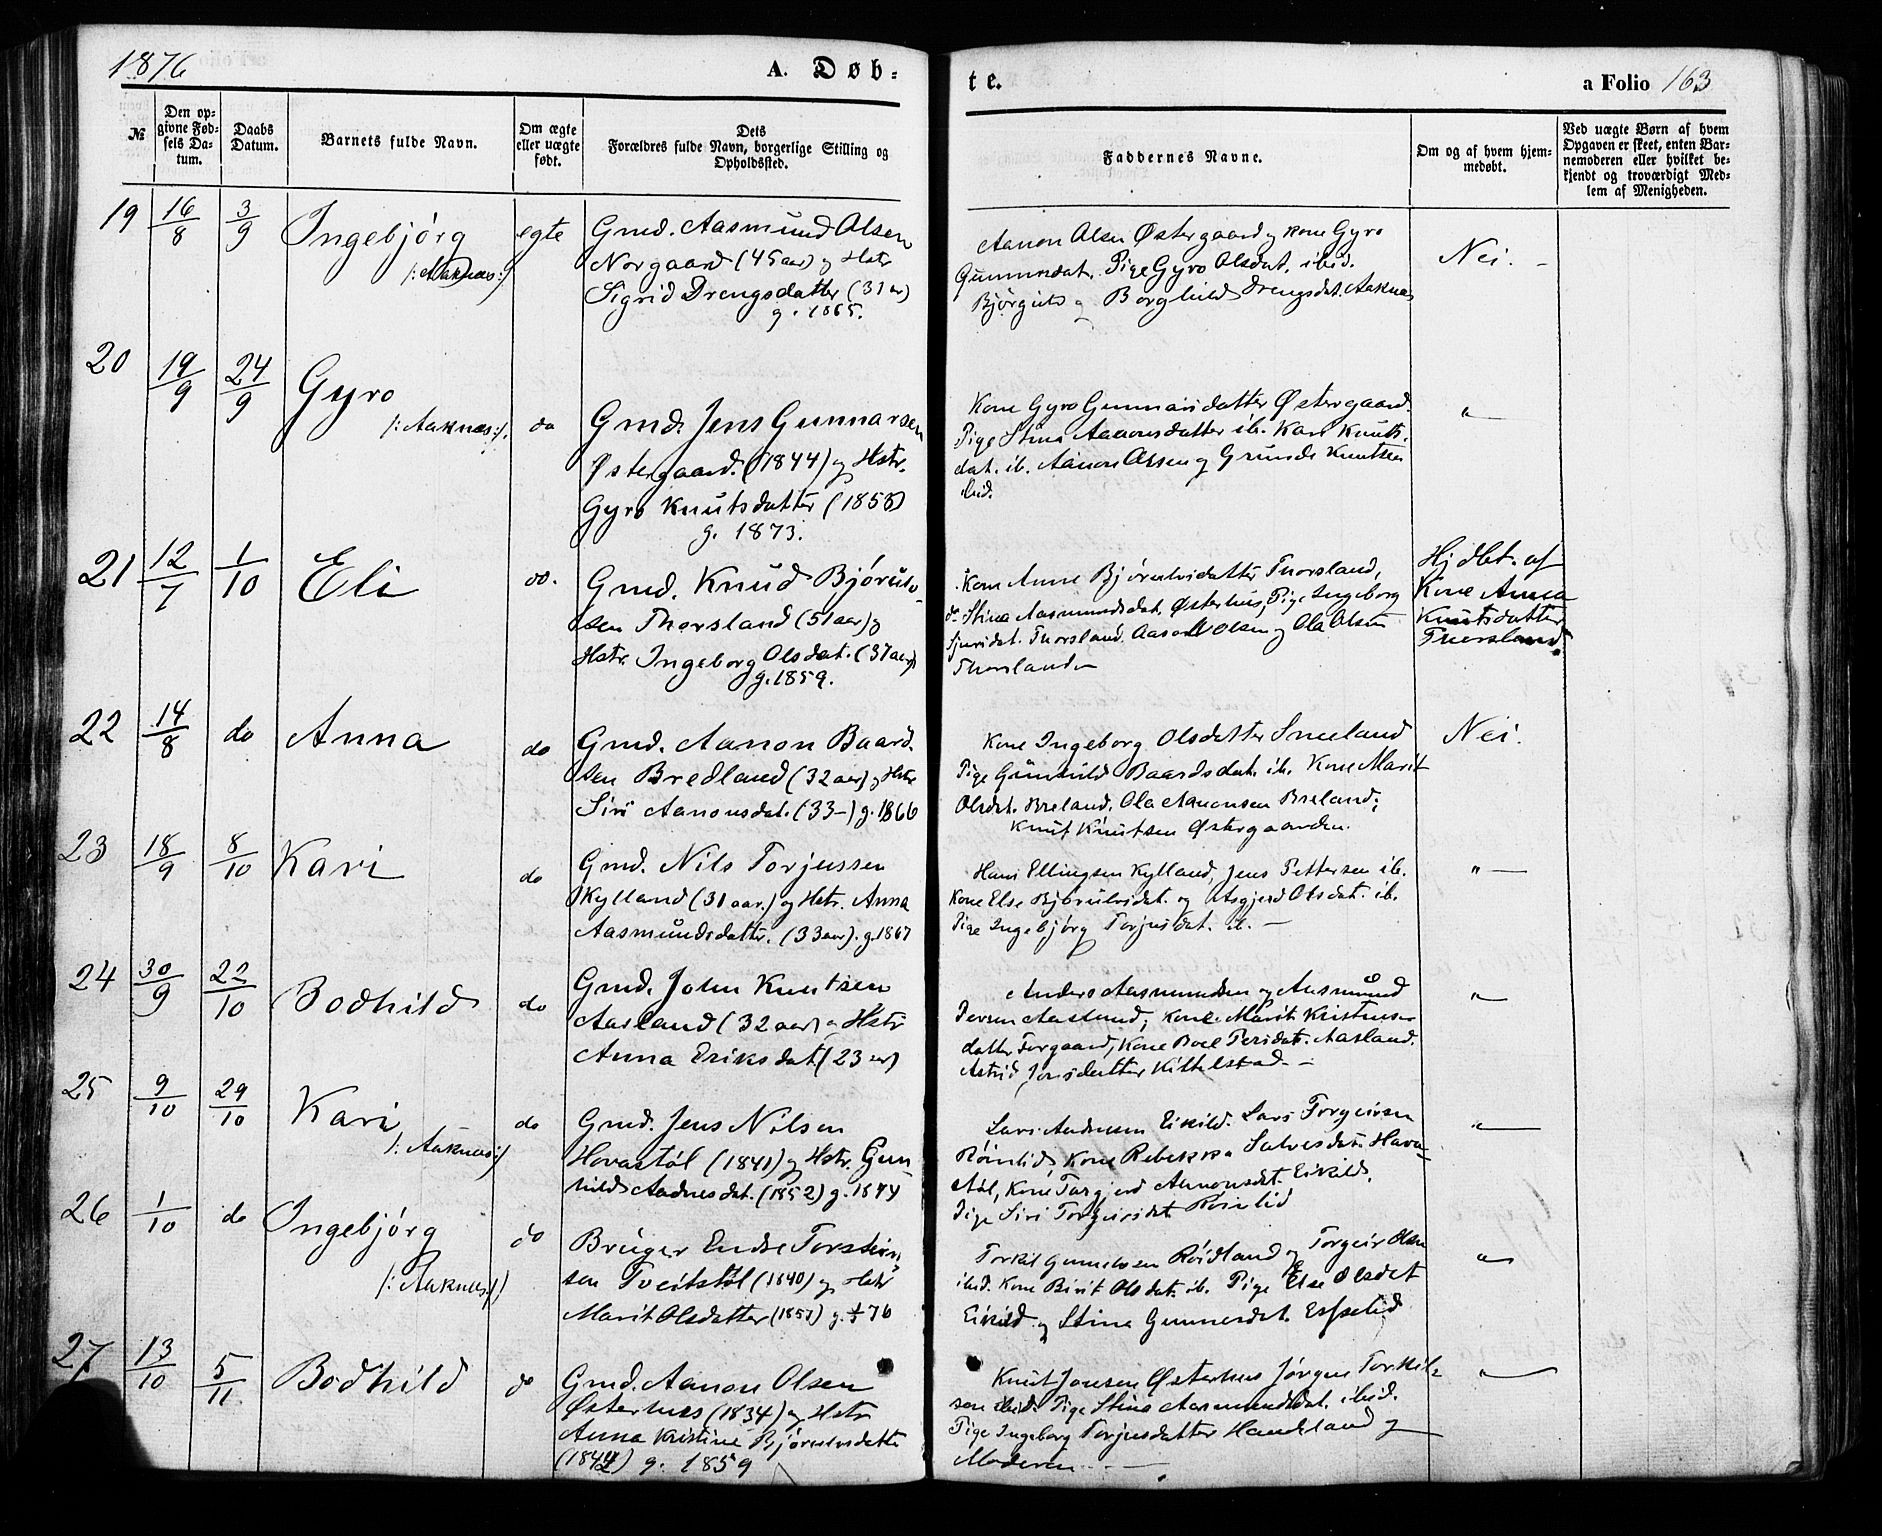 1876 A. Døb- te. a Folio 163
№ Den opgivne Fødsels Datum. Daabs Datum. Barnets fulde Navn. Om ægte eller uægte født. Dets Forældres fulde Navn, borgerlige Stilling og Opholdssted. Faddernes Navne. Om og af hvem hjemmedøbt. Ved uægte Børn af hvem Opgaven er skeet, enten Barnemoderen eller hvilket bekjendt og troværdigt Medlem af Menigheden.
19 16/8 3/9 Ingebjørg egte Gmd. Aasmund Olsen
/: Aaknæs :/ Norgaard (45 aar) og Hstr
Sigrid Drengsdatter (31 ar)
g. 1865.
Aanon Olsen Østergaard og Kone Gyro
Gunnarsdat. Pige Gyro Olsdat. ibid.
og Borghild Drengsdat. Aaknes
Nei. -
20 19/9 24/9 Gyro
/: Aaknæs :/. do Gmd. Jens Gunnarsen
Østergaard (1844) og Hstr.
Gyro Knutsdatter (1853)
g. 1873.
Kone Gyro Gunnarsdatter Østergaard.
Pige Stina Aanonsdatter ib. Kari Knuts-
dat. ib. Aanon Olsen og Grunde Knutsen
ibid.
"
21 12/7 1/10 Eli do. Gmd. Knud Bjørulv-
sen Thorsland (51 aar) og
Hstr. Ingeborg Olsdat. (37 aar)
g. 1859.
Kone Anne Bjørulvsdatter Thorsland,
do Stina Aasmundsdat. Østerhus, Pige Ingeborg
Sjursdat. Thorsland. Olsen og Ola Olsen
Thorsland
Hjdbt. af
Kone Anna
Knutsdatter
Thorsland.
22 14/8 do Anna do Gmd. Aanon Baard-
sen Bredland (32 aar) og Hstr
Siri Aanonsdat. (33 -) g. 1866
Kone Ingeborg Olsdatter
Pige Gunhild Baardsdat. ib. Kone Marit
Olsdat. Breland. Ola Aanonsen Breland;
Knut Knutsen Østergaarden.
Nei.
23 18/9 8/10 Kari do Gmd. Nils Torjussen
Kylland (31 aar.) og Hstr. Anna
Aasmundsdatter. (33 aar). g. 1867
Hans Ellingsen Kylland, Jens Pettersen ib.
Kone Else Bjørulvsdat. og Asgjerd Olsdat. ib.
Pige Ingebjørg Torjusdat. ib. -
" -
24 30/9 22/10 Bodhild do Gmd. John Knutsen
Aasland (32 aar) og Hstr
Anna Eriksdat (23 aar)
Anders Aasmundsen og Aasmund
Aasland; Kone Marit Kristens-
datter, Kone Boel Persdat. Aasland.
Astrid Jonsdatter Kittelstad. -
"
25 9/10 29/10 Kari
/: Aaknæs :/ do Gmd. Jens Nilsen
Hovastøl (1841) og Hstr. Gun-
hild Aadnesdat. (1852) g. 1874
Lars Andersen Eikild. Lars Torgeirsen
Røinlid, Kone Rebekka Salvesdat. Hova-
støl, Kone Torgjerd Aanonsdat. Eikild,
Pige Siri Torgeirsdat Røinlid
"
26 1/10 do Ingebjørg
/: Aaknæs :/ do Brüger Endre Torstein-
sen Tveitstøl (1840) og Hstr
Marit Olsdatter (1857) g. 76
Torkil Gunnelsen Røidland og Torgeir Olsen
ibid. Kone Birit Olsdat. ib. Pige Else Olsdat
Eikild og Stina Gunnersdat.
"
27 13/10 5/11 Bodhild do Gmd. Aanon Olsen
Østerhus (1834) og Hstr
Anna Kristine Bjørulvsdatter
g. 1859
Knut Jonsen Østerhus Jørgen Torkil-
sen ibid. Pige Stina Aasmundsdat. ibid.
Pige Ingeborg Torjusdatter Haugland og
Moderen. -
"